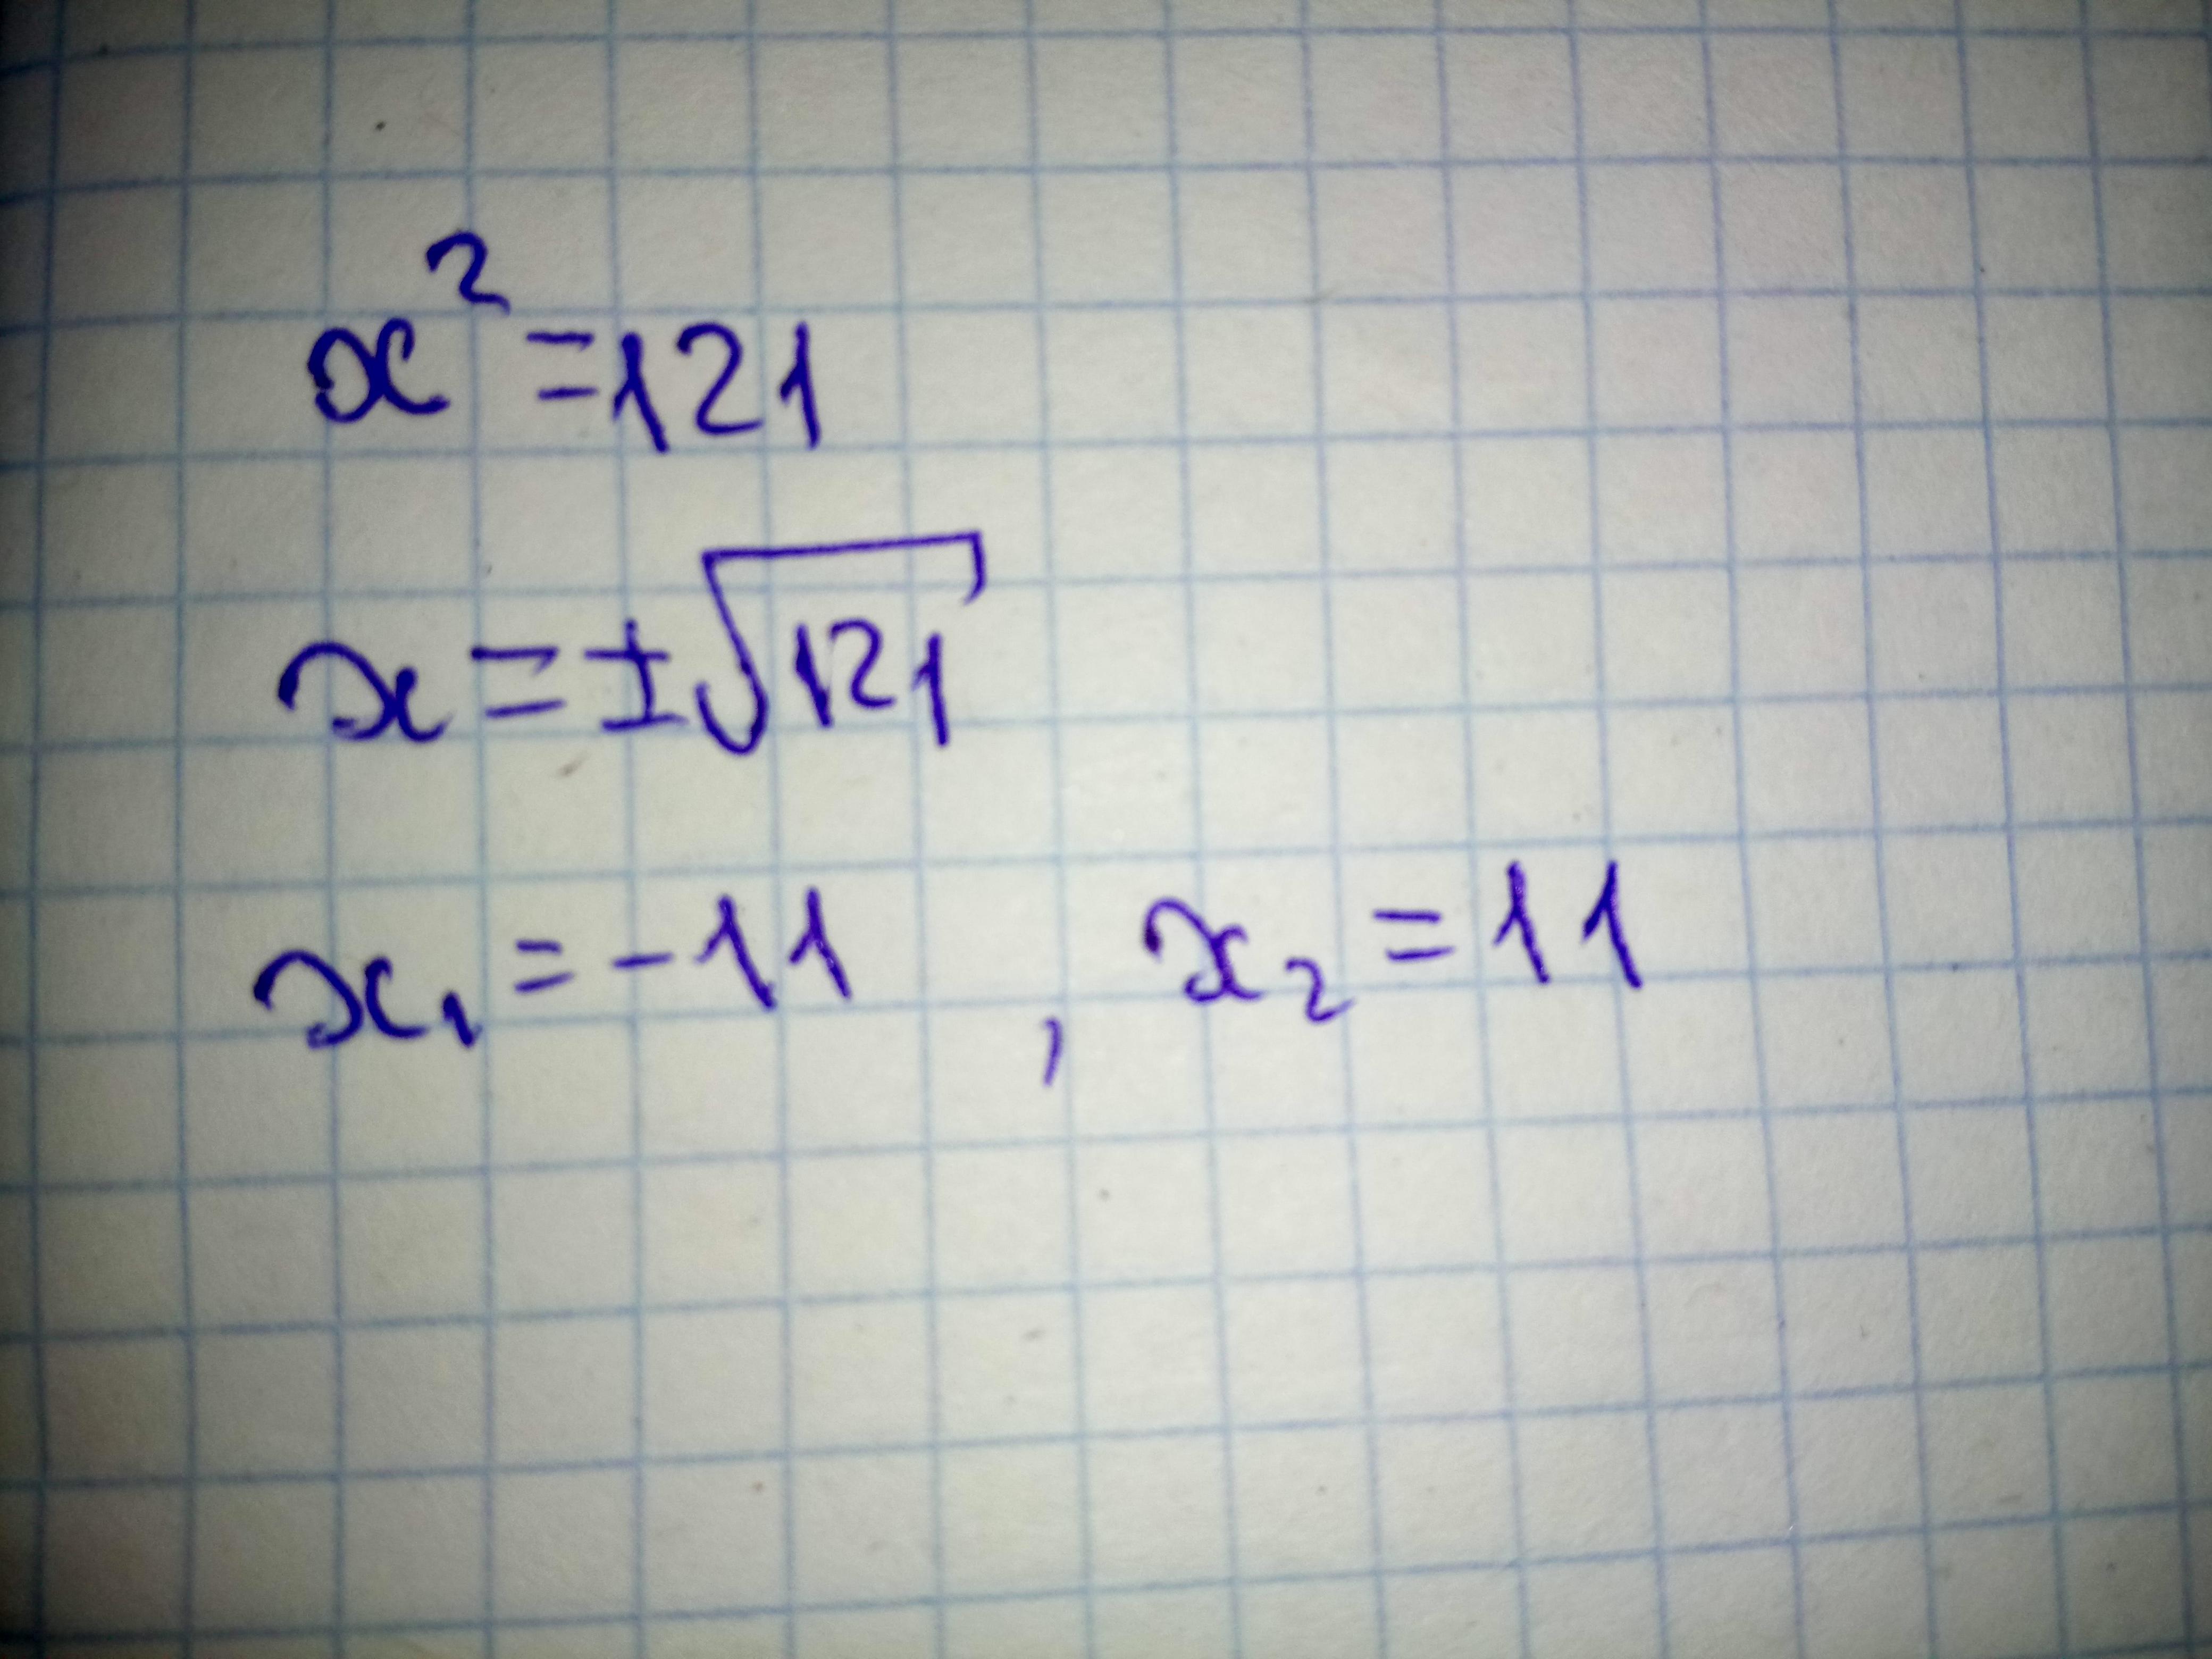 x² = 121
x = ±√121
x₁ = -11 , x₂ = 11